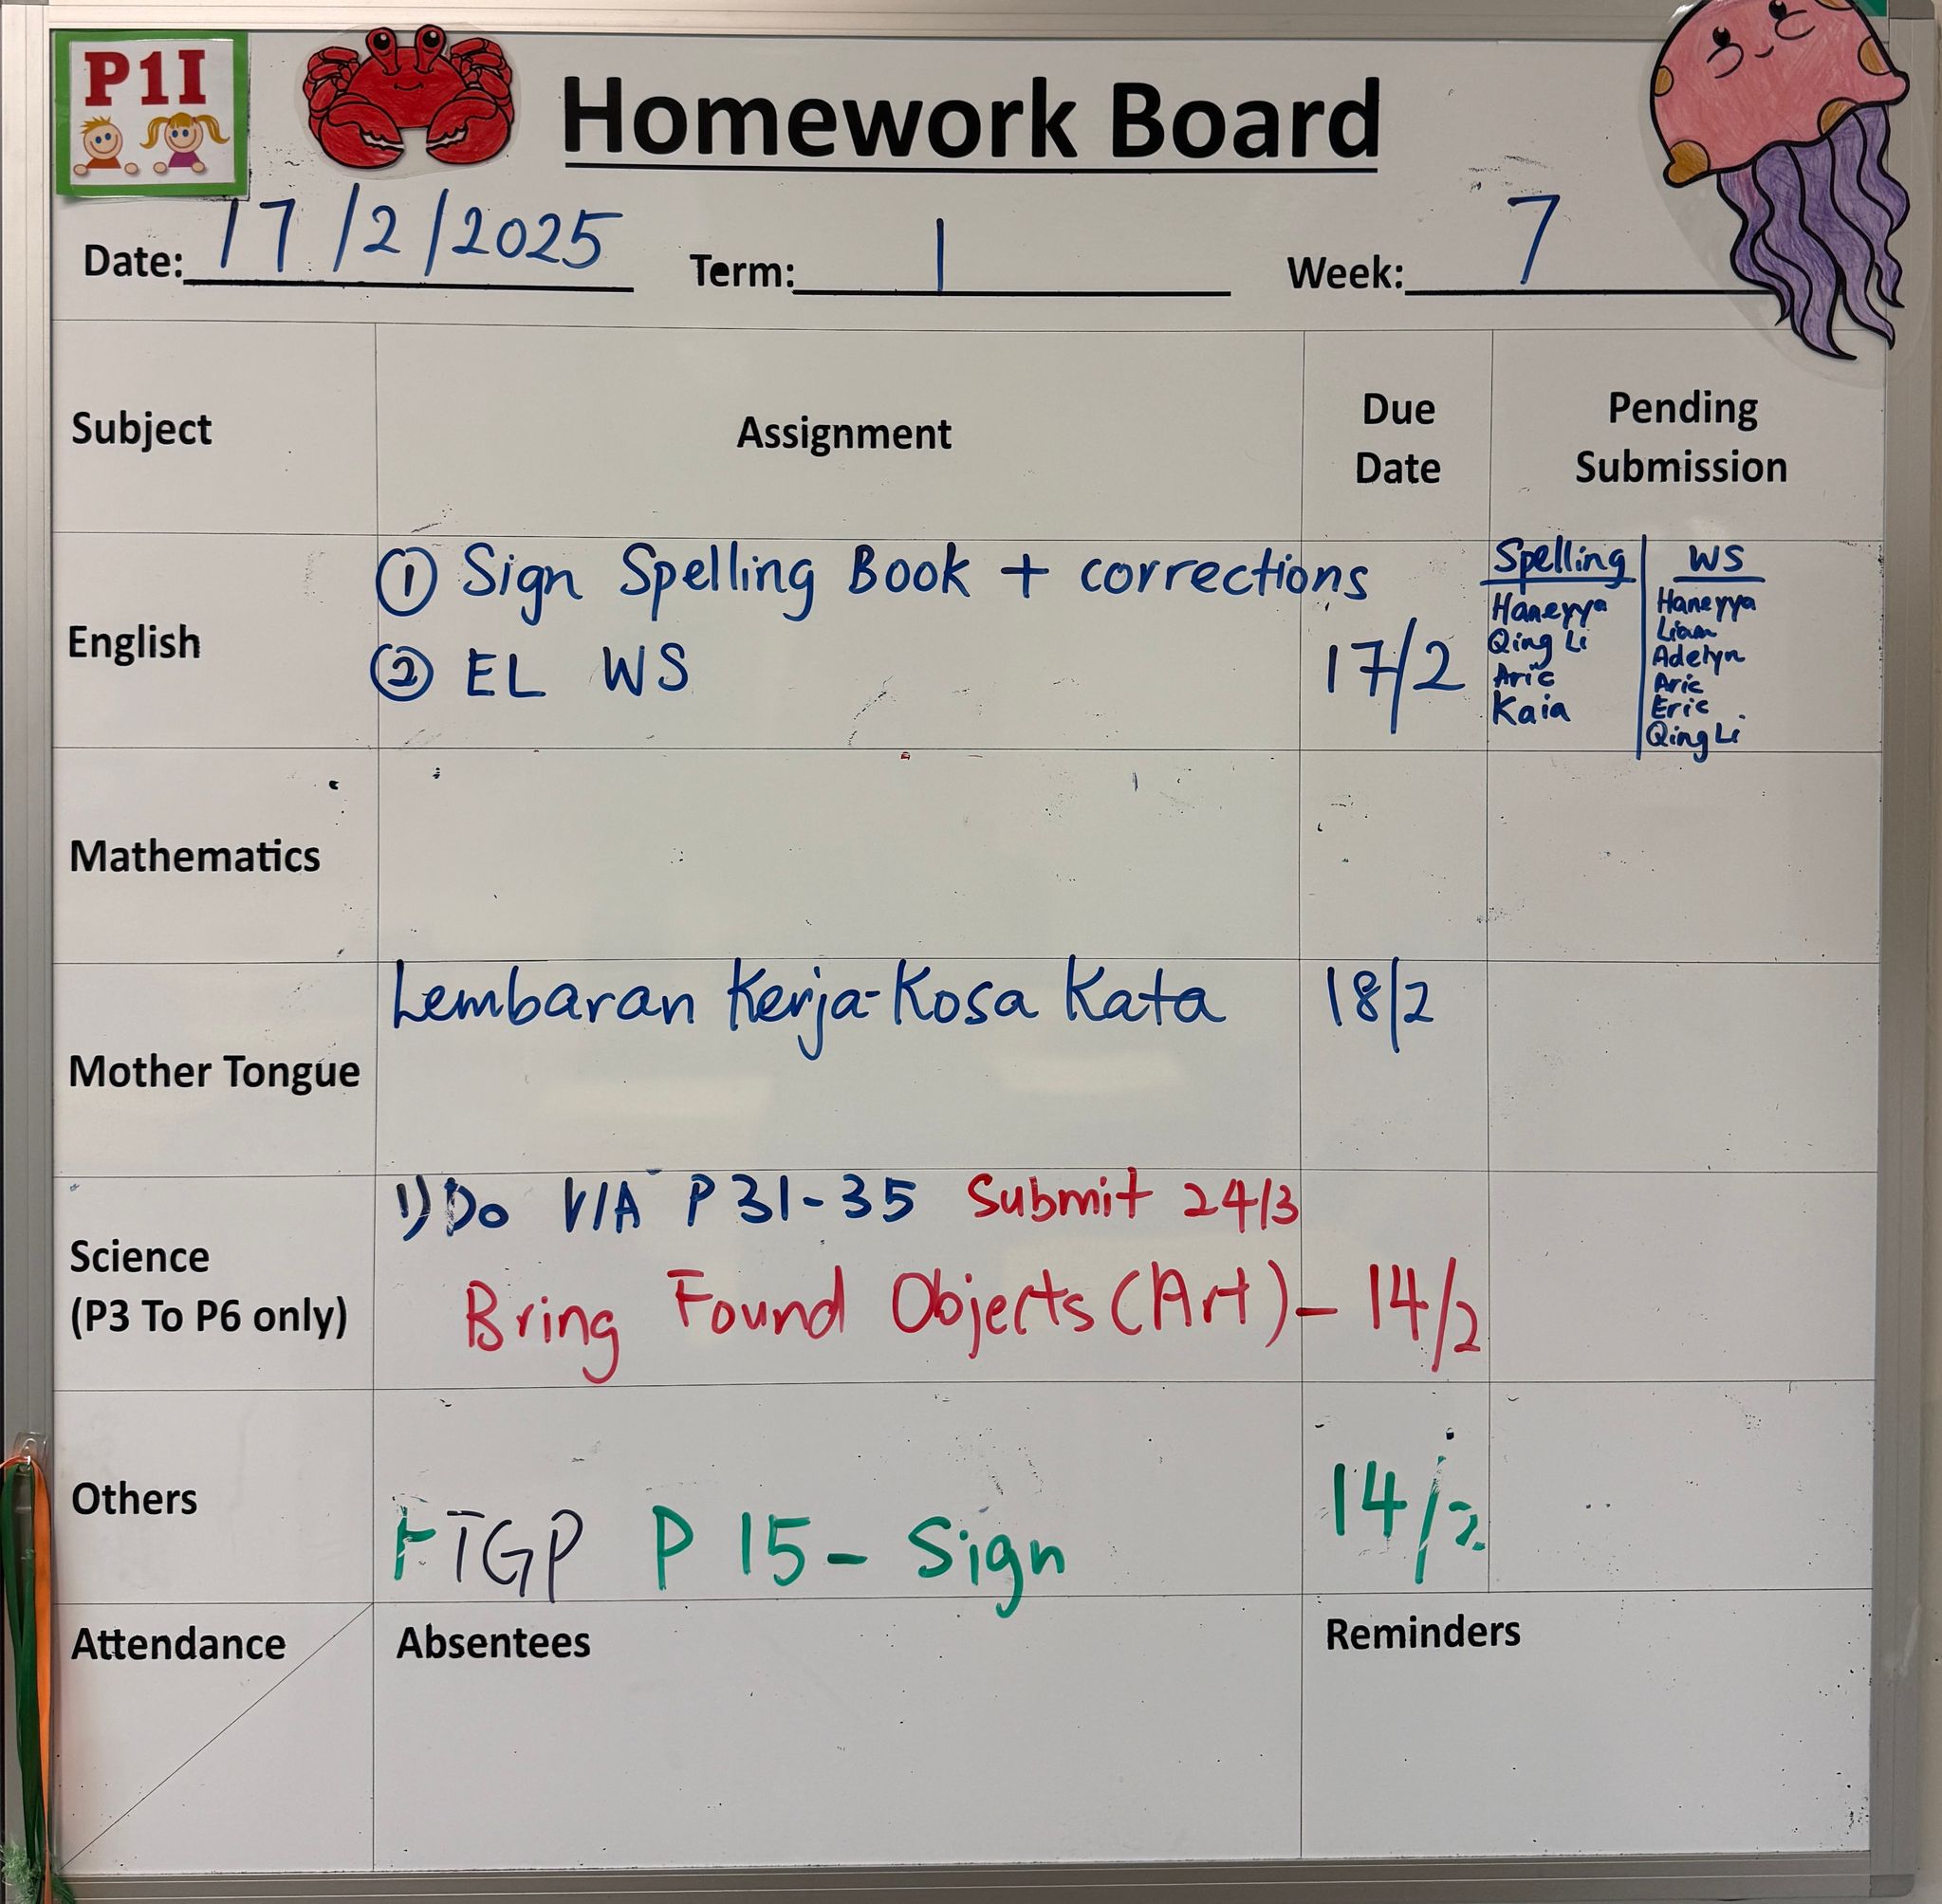 P1I
Homework Board
Date: 17/2/2025 Term: 1 Week: 7
Subject Assignment Due Date Pending Submission
English
① Sign Spelling Book + corrections
② EL WS
17/2
Spelling
Haneyya
Qing Li
Aric
Kaia
WS
Haneyya
Liam
Adelyn
Aric
Eric
Qing Li
Mathematics
Mother Tongue
Lembaran Kerja-Kosa Kata 18/2
Science
(P3 To P6 only)
1) Do V/A P 31-35 Submit 24/3
Bring Found Objects (Art) - 14/2
Others
FTGP P 15 - Sign 14/2
Attendance Absentees Reminders